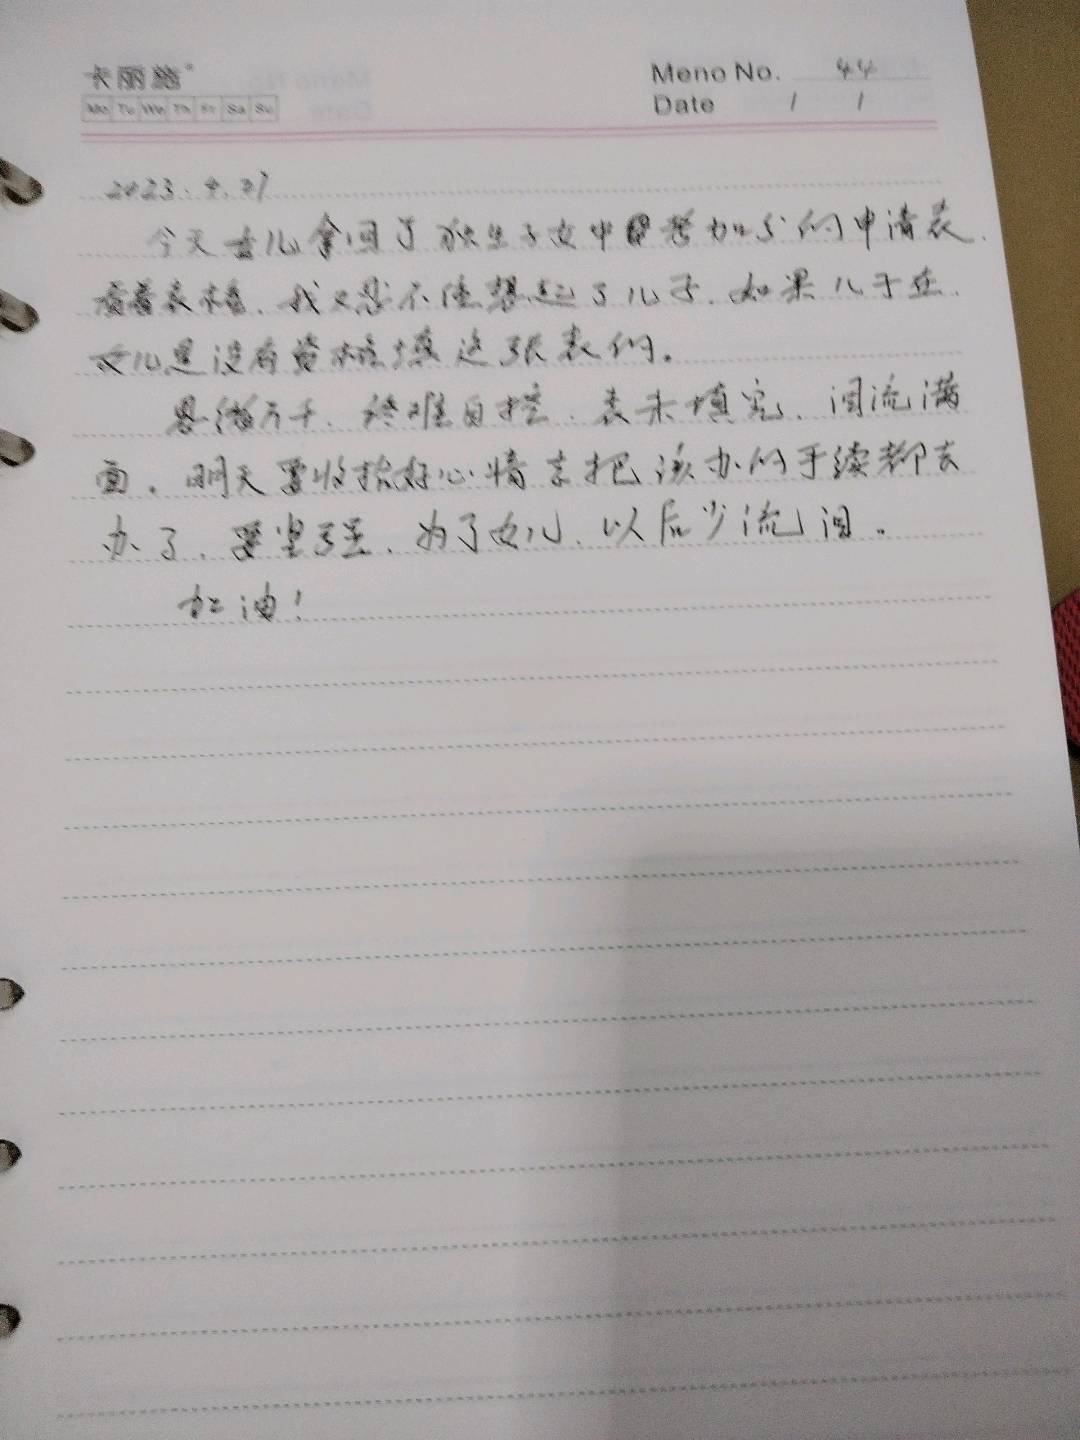 卡丽施
Meno No. 44
Mo Tu We Th Fr Sa Su
Date / /
2023.4.27
今天女儿拿回了独生子女中考加分的申请表.
看着表格,我又忍不住想起了儿子.如果儿子在.
女儿是没有资格填这张表的。
思绪万千,终难自控.表未填完,泪流满
面.明天要收拾好心情去把该办的手续都去
办了.要坚强.为了女儿,以后少流泪。
加油!